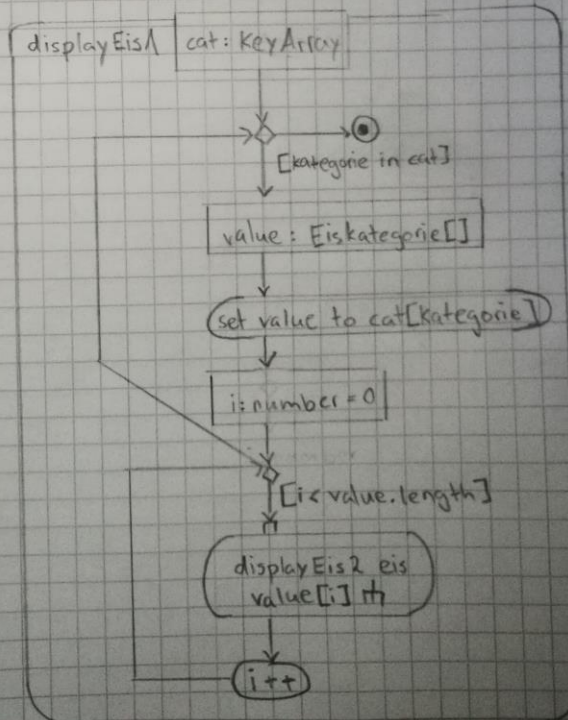 displayEis1 cat: KeyArray
[kategorie in cat]
value: Eiskategorie[]
set value to cat[kategorie]
i: number = 0
[i < value.length]
displayEis2 eis
value[i]
i++